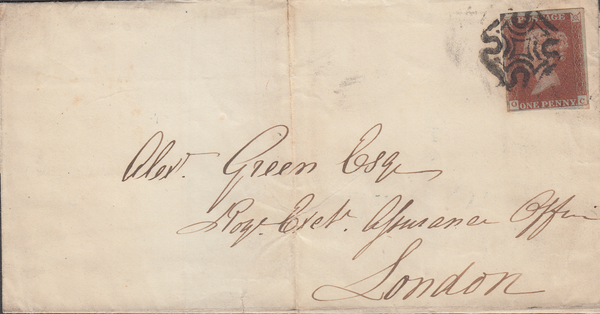 POSTAGE
ONE PENNY
Alexr. Green Esqr
Roy. Exch. Assurance Office
London